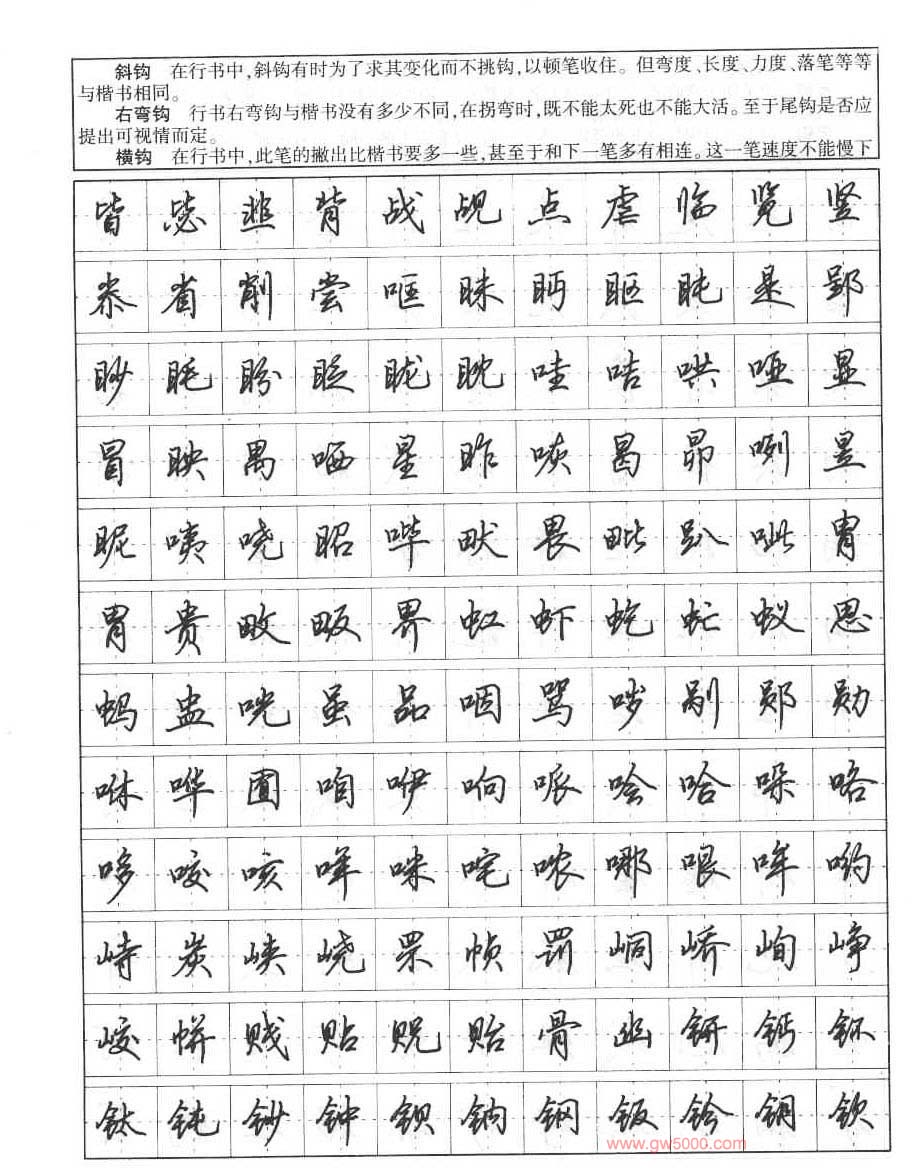 斜钩　在行书中,斜钩有时为了求其变化而不挑钩,以顿笔收住。但弯度、长度、力度、落笔等等
与楷书相同。
右弯钩　行书右弯钩与楷书没有多少不同,在拐弯时,既不能太死也不能大活。至于尾钩是否应
提出可视情而定。
横钩　在行书中,此笔的撇出比楷书要多一些,甚至于和下一笔多有相连。这一笔速度不能慢下
皆 毖 韭 背 战 觇 点 虐 临 览 竖
省 削 尝 哐 昧 眄 眍 盹 是 郢
眇 眊 盼 眨 眬 眈 哇 咭 哄 哑 显
冒 映 禺 哂 星 昨 咴 曷 昴 咧 昱
昵 咦 哓 昭 哔 畎 畏 毗 趴 呲 胄
胃 贵 畋 畈 界 虹 虾 虼 虻 蚁 思
蚂 盅 咣 虽 品 咽 骂 哕 剐 郧 勋
咻 哗 囿 咱 咿 响 哌 哙 哈 哚 咯
哆 咬 咳 咩 咪 咤 哝 哪 哏 哞 哟
峙 炭 峡 峣 罘 帧 罚 峒 峤 峋 峥
峧 帡 贱 贴 贶 贻 骨 幽 钘 钙 钚
钛 钝 钞 钟 钡 钠 钢 钣 钤 钥 钦
www.gw5000.com